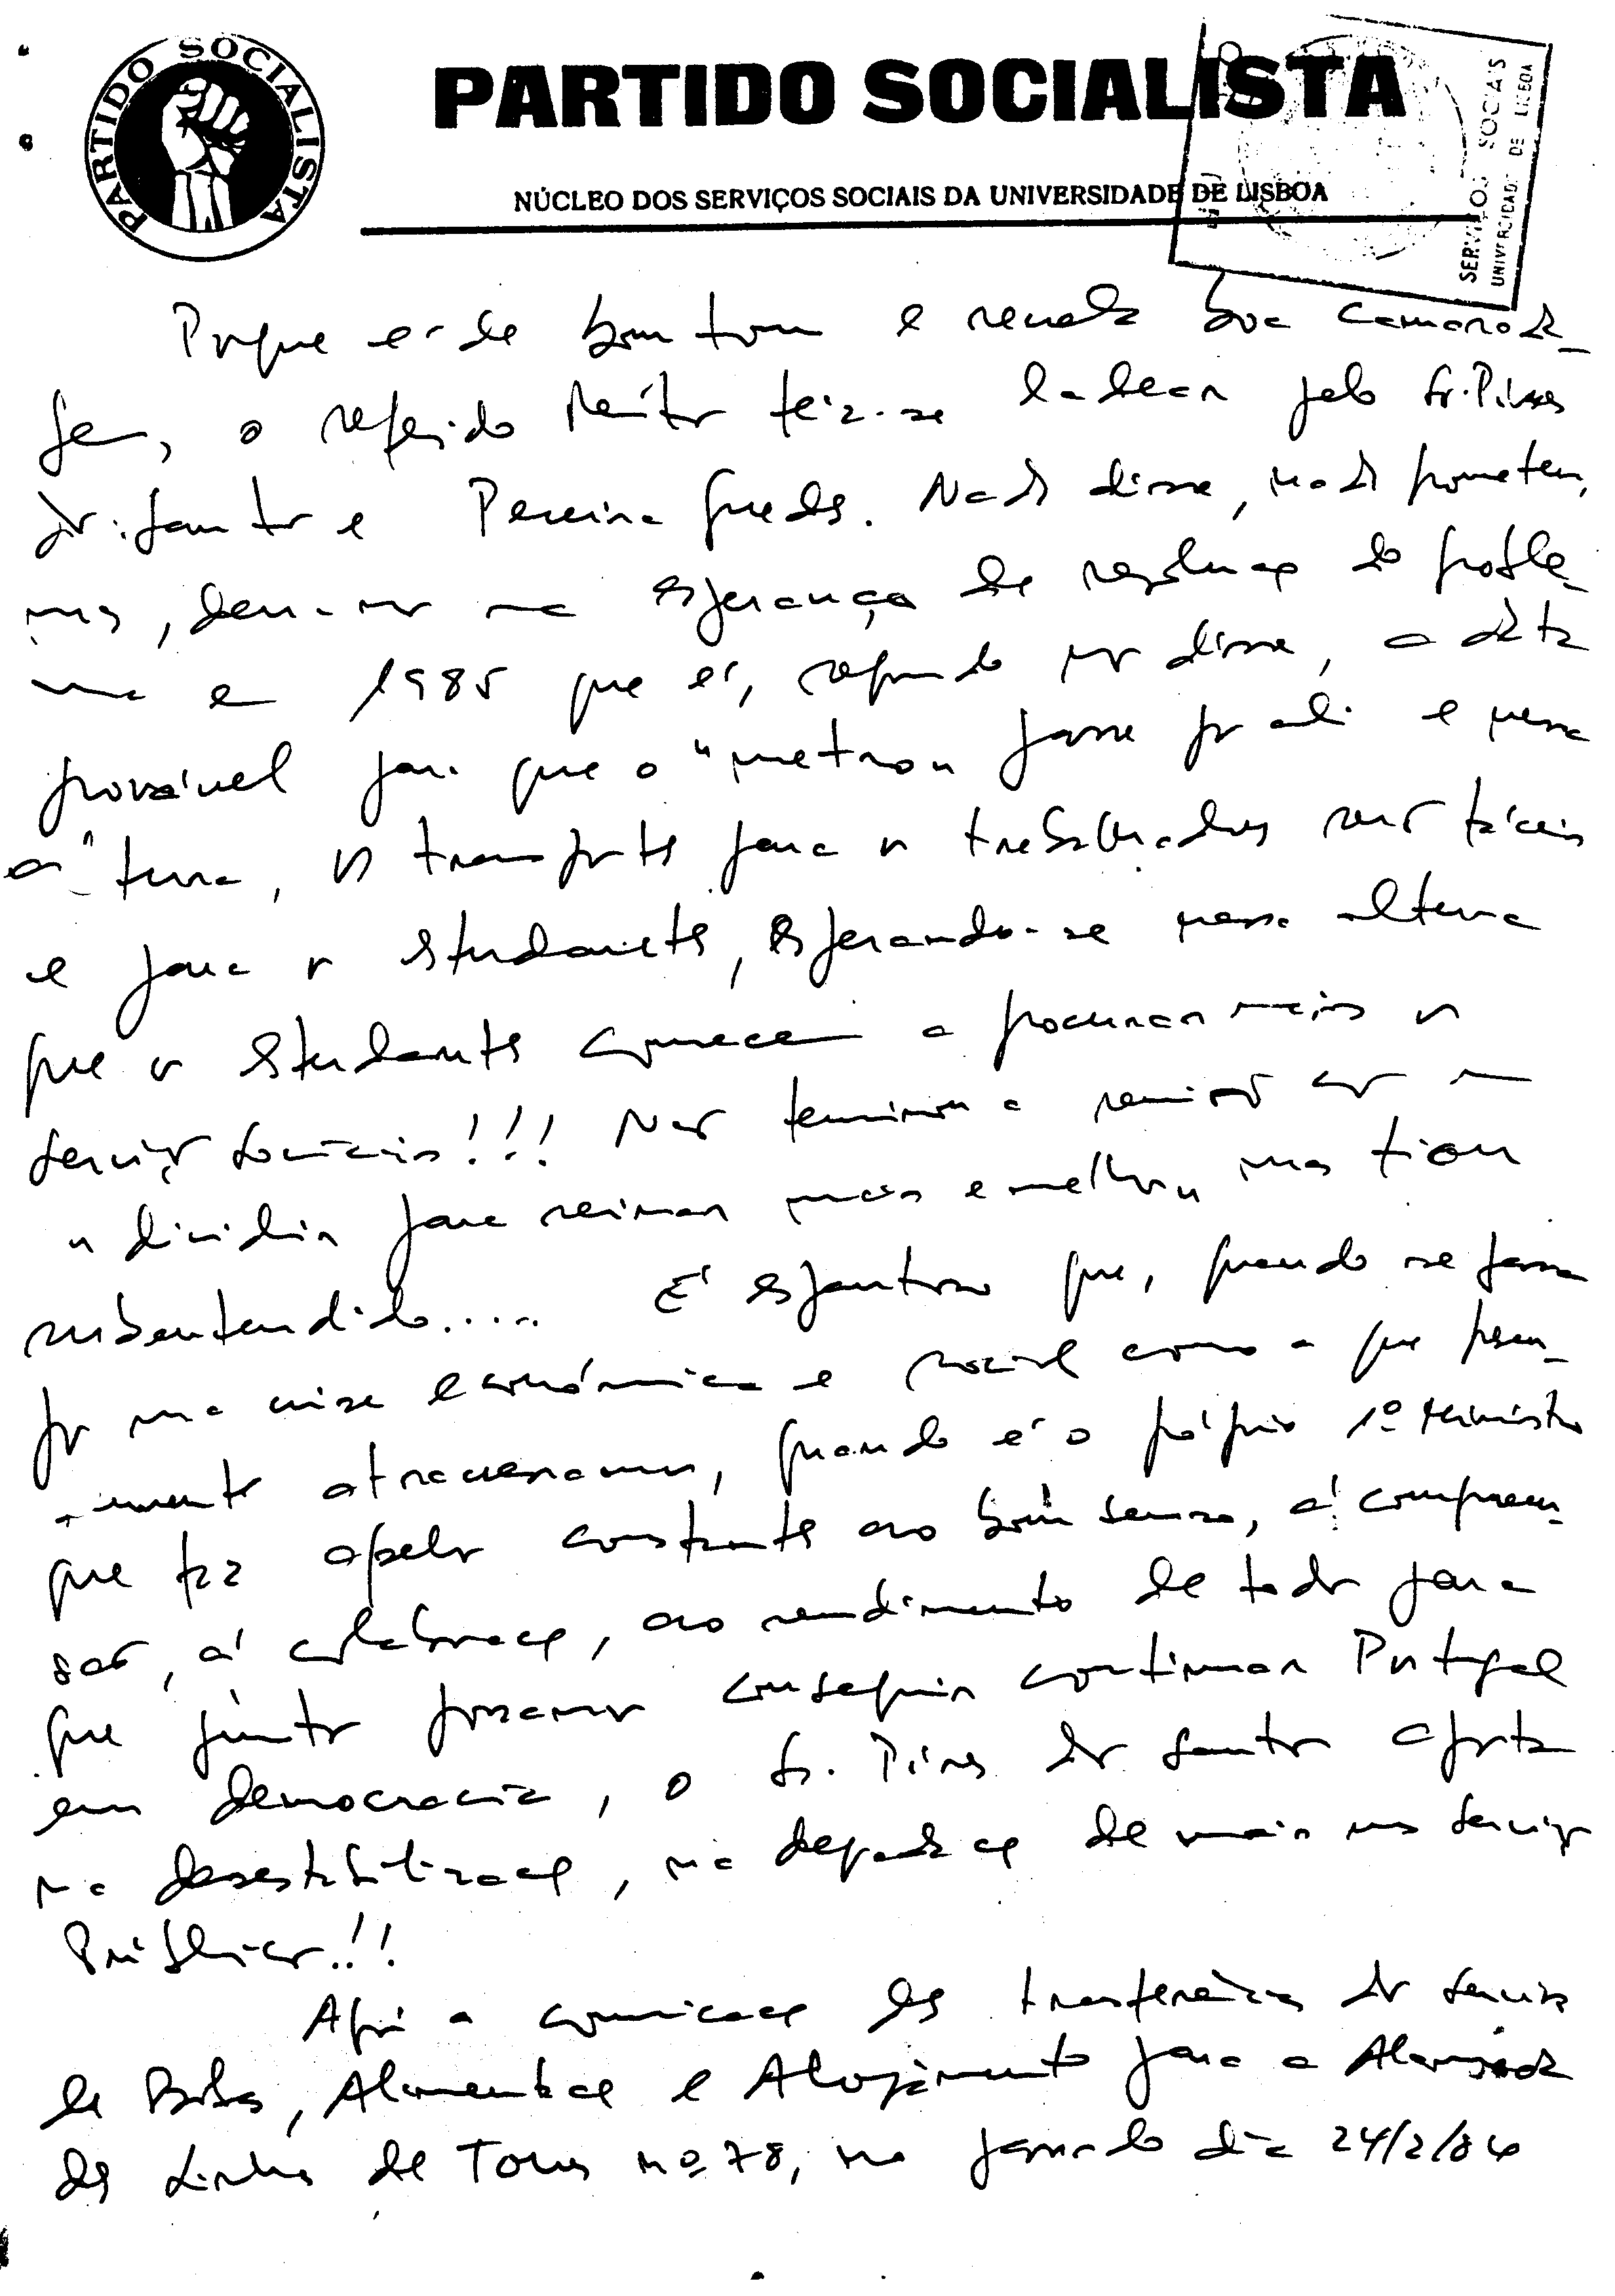 PARTIDO SOCIALISTA
PARTIDO SOCIALISTA
NÚCLEO DOS SERVIÇOS SOCIAIS DA UNIVERSIDADE DE LISBOA
SERVIÇOS SOCIAIS
UNIVERSIDADE DE LISBOA
Porque é de bom tom e revela boa camarada-
gem, o referido Reitor fez-se ladear pelo Sr. Pires
dos Santos e Pereira Guedes. Nada disse, nada prometeu,
mas, deu-nos na esperança de resolução do proble-
ma em 1985 que é, segundo nos disse, a data
provável para que o "metro" passe por ali e nessa
altura, os transportes para os trabalhadores são fáceis
e para os estudantes, esperando-se nessa altura
que os estudantes comecem a procurar mais os
Serviços Sociais!!! Não terminou a reunião com um
"dividir para reinar mais e melhor" mas ficou
subentendido..... É espantoso que, quando se passa
por uma crise económica e social como a que presen-
temente atravessamos, quando é o próprio 1º Ministro
que faz apelos constantes ao bom senso, á compreen-
são, á colaboração, ao rendimento de todos para
que juntos possamos conseguir continuar Portugal
em democracia, o Sr. Pires dos Santos aposta
na desestabilização, na degradação de mais uns Serviços
Públicos.!!
Após a comunicação das transferências dos Serviços
de Bolsas, Alimentação e Alojamento para a Alameda
das Linhas de Torres nº 78, no passado dia 24/2/84